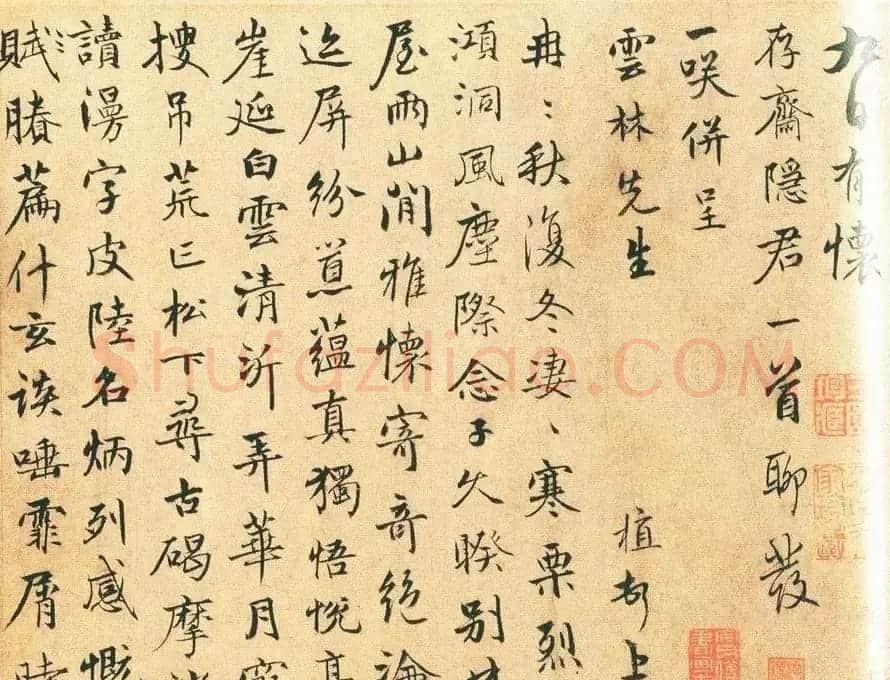 九日有懷
存齋隱君一首聊發
一咲併呈
雲林先生 植頓上
冉〻秋復冬淒〻寒栗烈
澒洞風塵際念子久暌別
屋兩山間雅懷寄奇絕論
迄屏紛蘊真獨悟悅
崖延白雲清沂弄華月
搜吊荒丘松下尋古碣摩
讀漫字皮陸名炳列感慨
賦賸篇什玄談唾霏屑
Shufaziliao.COM